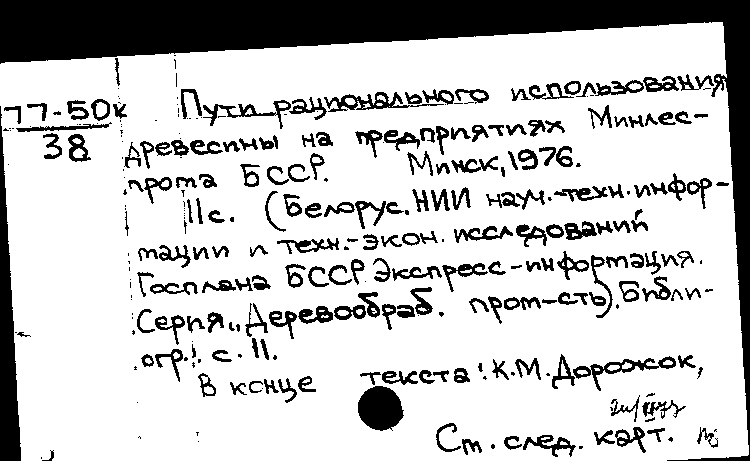 77-50к
38
Пути рационального использования
древесины на предприятиях Минлес-
прома БССР. Минск, 1976.
11с. (Белорус. НИИ науч.-техн. инфор-
мации и техн.-экон. исследований
Госплана БССР. Экспресс-информация.
Серия „Деревообраб. пром-сть). Библи-
огр.: с. 11.
В конце текста: К.М. Дорожок,
Ст. след. карт.